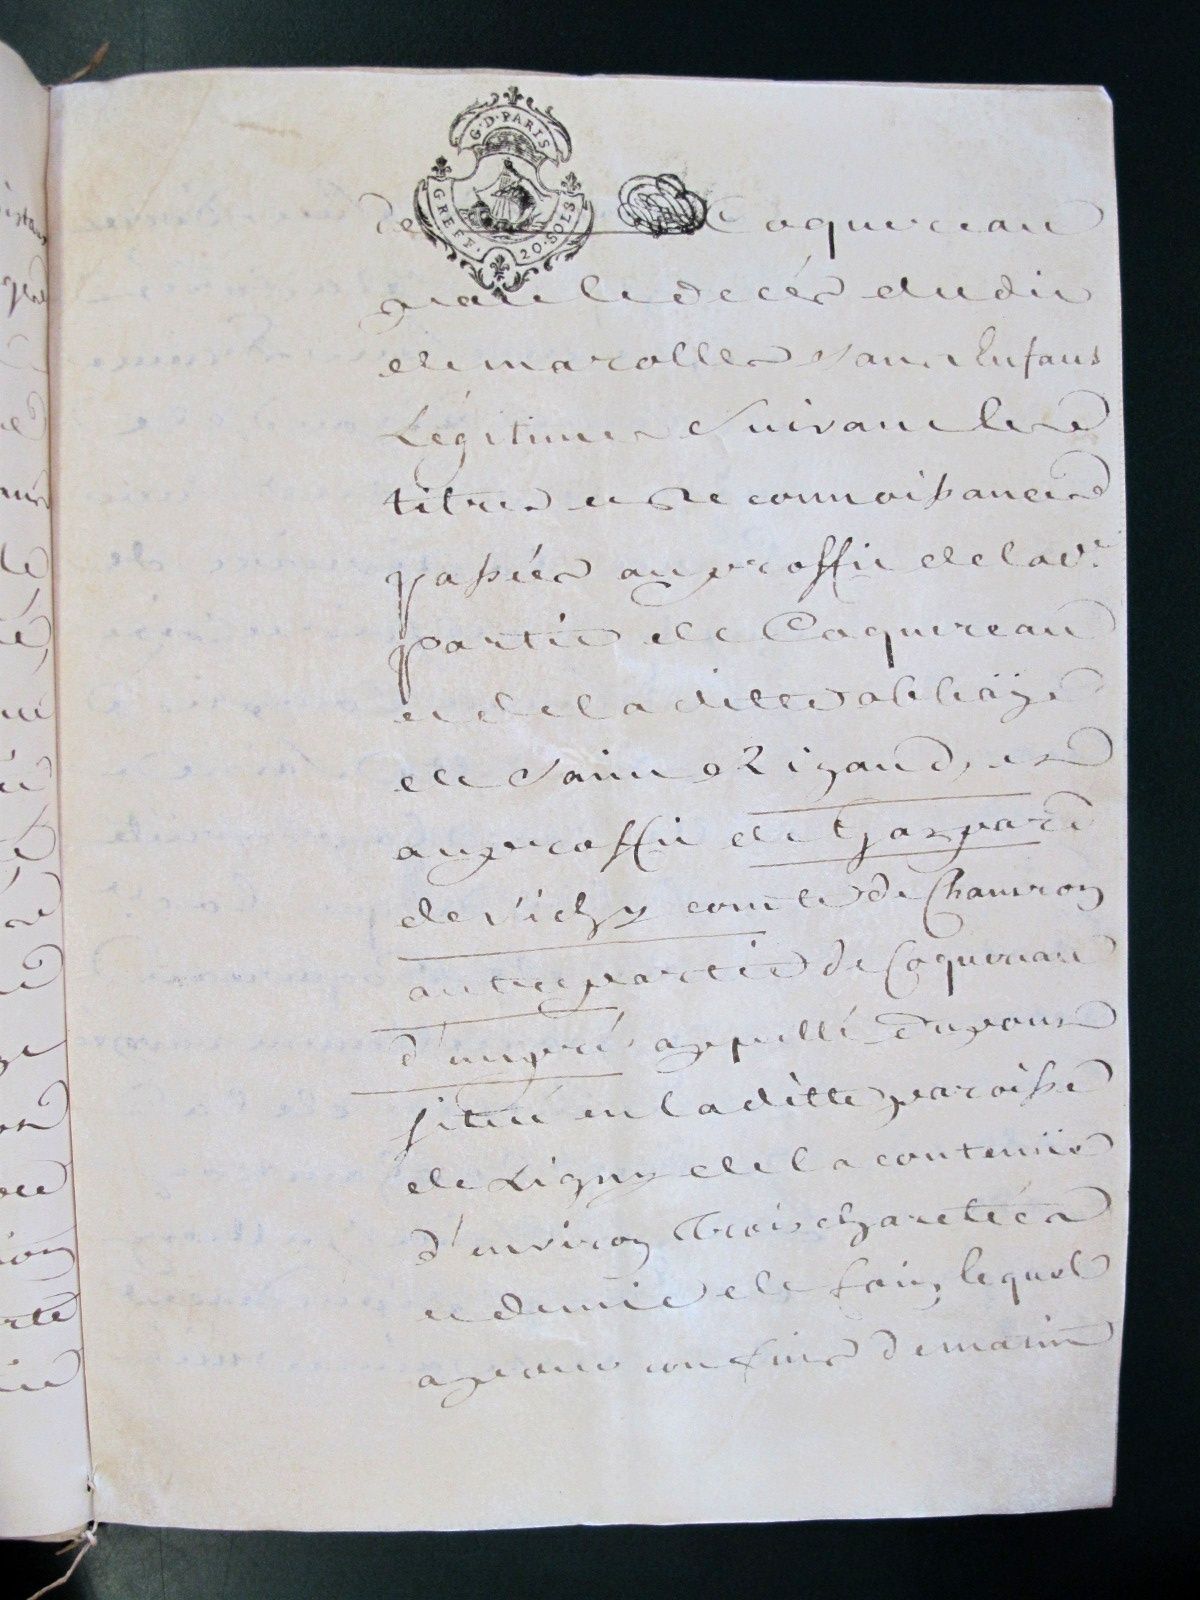 G·D·PARIS
GREFF. 20·SOLS
de Coquereau
par le decés dudit
de marolles sans Enfans
Légitimes Suivant les
titres et Reconnoissances
passées au proffit de lad.e
partie de Coquereau
et de la ditte abbaÿe
de Saint Rigaud, et
au proffit de Gaspard
de vichy comte de Chamron
autre partie de Coquereau
d'un pré appellé Dupont
situé en la ditte paroisse
de Ligny de la contenüe
d'environ Trois charetées
et demie de foin, lequel
a pour confins de matin